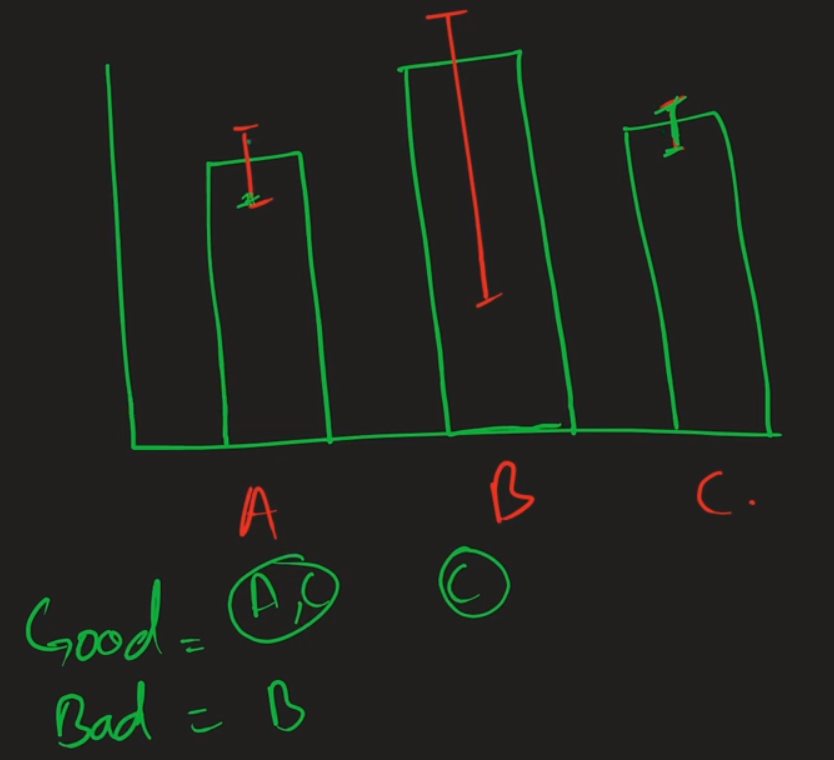 A B C.
Good = A, C C
Bad = B